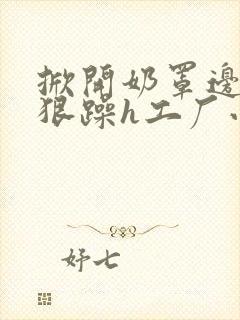 掀開奶罩邊
狠躁h工厂
妤七